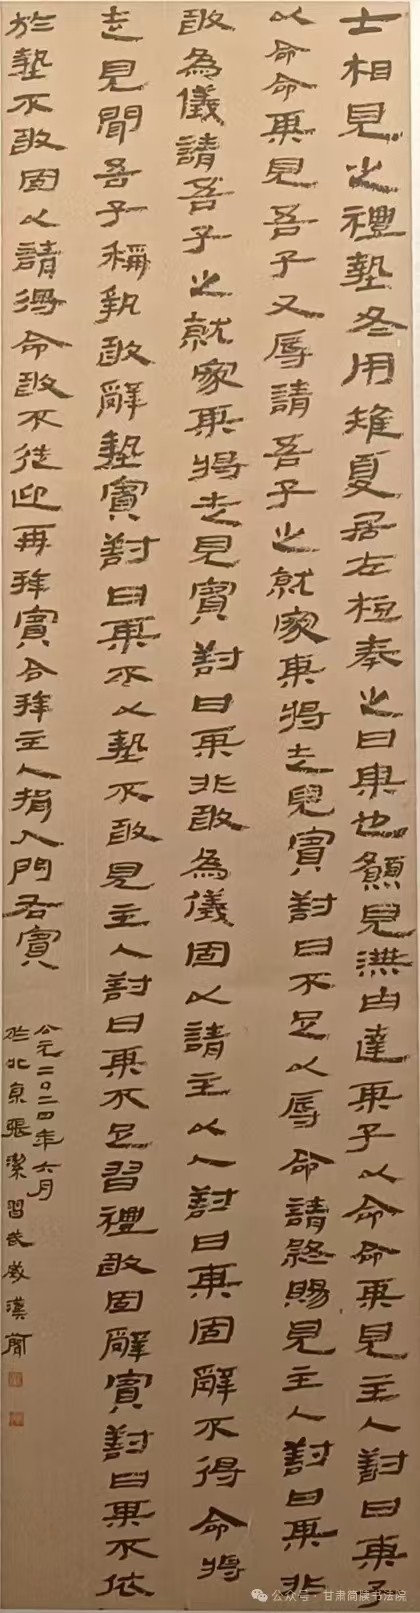 士相見之禮摯冬用雉夏居左梪奉之曰某也願見無由達某子以命命某見主人對曰某子
以命命某見吾子又辱請吾子之就家某將走見賓對曰不足以辱命請終賜見主人對曰某非
敢為儀請吾子之就家某將走見賓對曰某非敢為儀固以請主人對曰某固辭不得命將
走見聞吾子稱執敢辭摯賓對曰某不以摯不敢見主人對曰某不足習禮敢固辭賓對曰某不依
於摯不敢固以請得命敢不從迎再拜賓合拜主人揖入門右賓
公元二〇二四年六月
於北京張潔習武威漢簡
公众号·甘肃简牍书法院